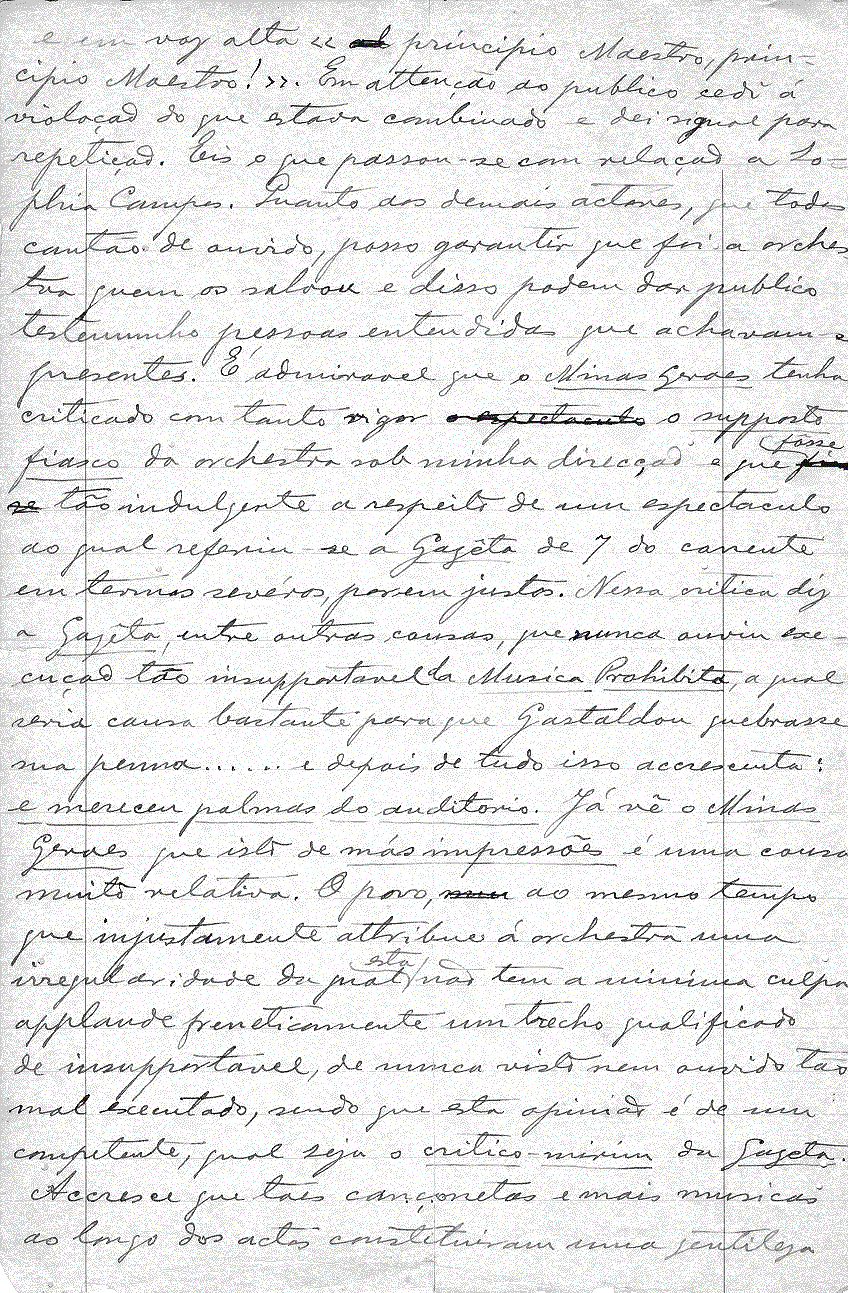 e em voz alta « al principio Maestro, prin-
cipio Maestro! ». Em attenção ao publico cedi á
violaçaõ do que estava combinado e dei signal para
repetiçaõ. Eis o que passou-se com relaçaõ a So-
phia Campos. Quanto aos demais actores, que todos
cantaõ de ouvido, posso garantir que foi a orches
tra quem os salvou e disso podem dar publico
testemunho pessoas entendidas que achavam-se
presentes. É admiravel que o Minas Geraes tenha
criticado com tanto rigor o espectaculo o supposto
fiasco da orchestra sob minha direcçaõ e que fosse
se tão indulgente a respeito de um espectaculo
ao qual referiu-se a Gazêta de 7 do corrente
em termos sevéros, porem justos. Nessa critica diz
a Gazêta, entre outras cousas, que nunca ouviu exe-
cuçaõ tão insupportavel da Musica Prohibita, a qual
seria causa bastante para que Gastaldou quebrasse
sua penna...... e depois de tudo isso accrescenta:
e mereceu palmas do auditorio. Já vê o Minas
Geraes que isto de más impressões é uma cousa
muito relativa. O povo, num ao mesmo tempo
que injustamente attribue á orchestra uma
irregularidade da qual esta naõ tem a minima culpa
applaude freneticamente um trecho qualificado
de insupportavel, de nunca visto nem ouvido tão
mal executado, sendo que esta opiniaõ é de um
competente, qual seja o critico-mirim da Gazeta.
Accresce que taes cançonetas e mais musicas
ao longo dos actos constituiram uma gentileza